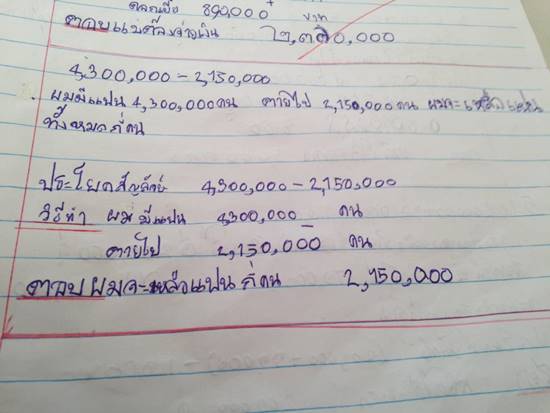 890,000 + บาท
ตอบแม่ต้องจ่ายเงิน ๒,๓๓๐,๐๐๐
4,300,000 - 2,150,000
ผมมีแฟน 4,300,000 คน ตายไป 2,150,000 คน ผมจะเหลือแฟน
ทั้งหมดกี่คน
ประโยคสัญลักษณ์ 4,300,000 - 2,150,000
วิธีทำ ผมมีแฟน 4,300,000 - คน
ตายไป 2,150,000 คน
ตอบ ผมจะเหลือแฟนกี่คน 2,150,000